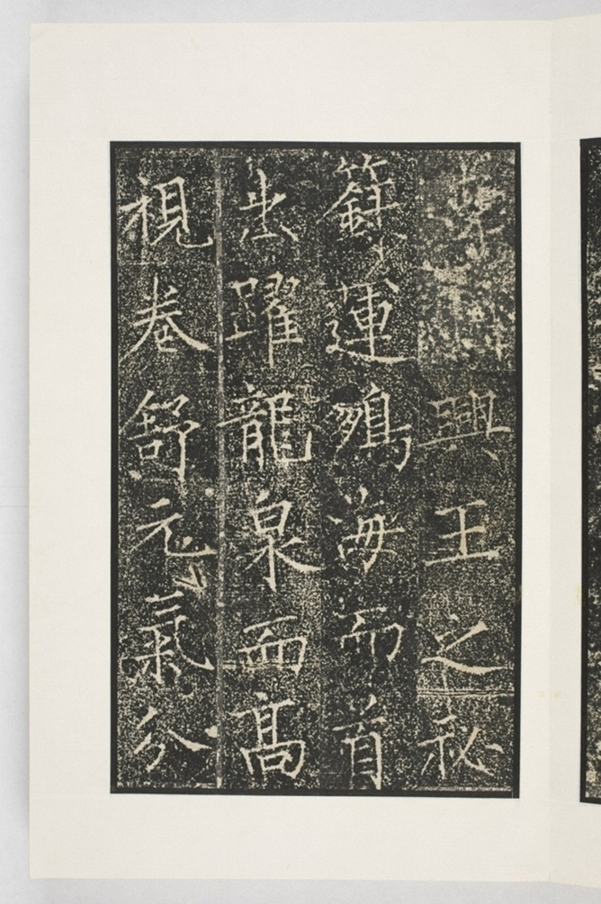 興王之秘
籙運海而首
出躍龍泉而高
視卷舒元氣分